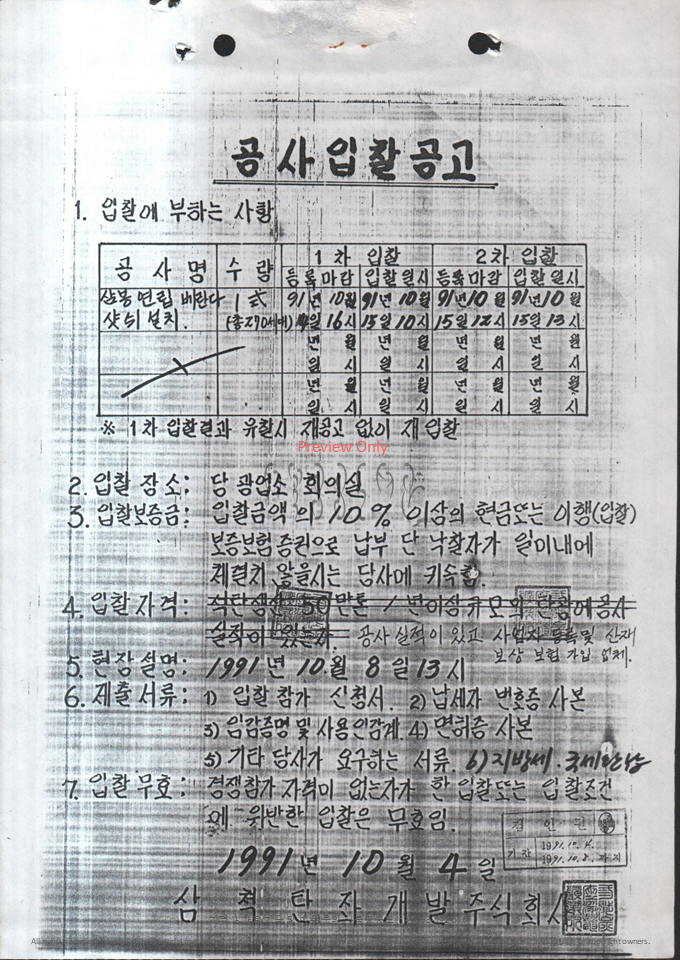 공사입찰공고
1. 입찰에 부하는 사항
공 사 명 수 량 1 차 입찰 2 차 입찰
등록마감 입찰일시 등록마감 입찰일시
산동연립 베란다 1 式 91년 10월 91년 10월 91년 10월 91년 10월
샷쉬 설치. (총270세대) 4일 16시 15일 10시 15일 12시 15일 13시
년 월 년 월 년 월 년 월
일 시 일 시 일 시 일 시
년 월 년 월 년 월 년 월
일 시 일 시 일 시 일 시
※ 1차 입찰결과 유찰시 재공고 없이 재입찰
Preview Only
2. 입찰 장소: 당 광업소 회의실
3. 입찰보증금: 입찰금액의 10% 이상의 현금또는 이행(입찰)
보증보험증권으로 납부 단 낙찰자가 일이내에
체결치 않을시는 당사에 귀속함.
4. 입찰자격: 석탄생산 50만톤 / 년이상규모의 탄광에공사
실적이 있는자. 공사 실적이 있고 사업자 등록및 산재
보상 보험 가입 업체.
5. 현장설명: 1991년 10.월 8일 13시
6. 제출서류: 1) 입찰참가 신청서. 2) 납세자 번호증 사본
3) 인감증명 및 사용인감계. 4) 면허증 사본
5) 기타 당사가 요구하는 서류. 6) 지방세. 국세완납
7. 입찰무효: 경쟁참가자격이 없는자가 한 입찰또는 입찰조건
에 위반한 입찰은 무효임.
검 인 란
기간 1991. 10. 4.
1991. 10. 8. 까지
1991년 10월 4일
삼척탄좌개발주식회사